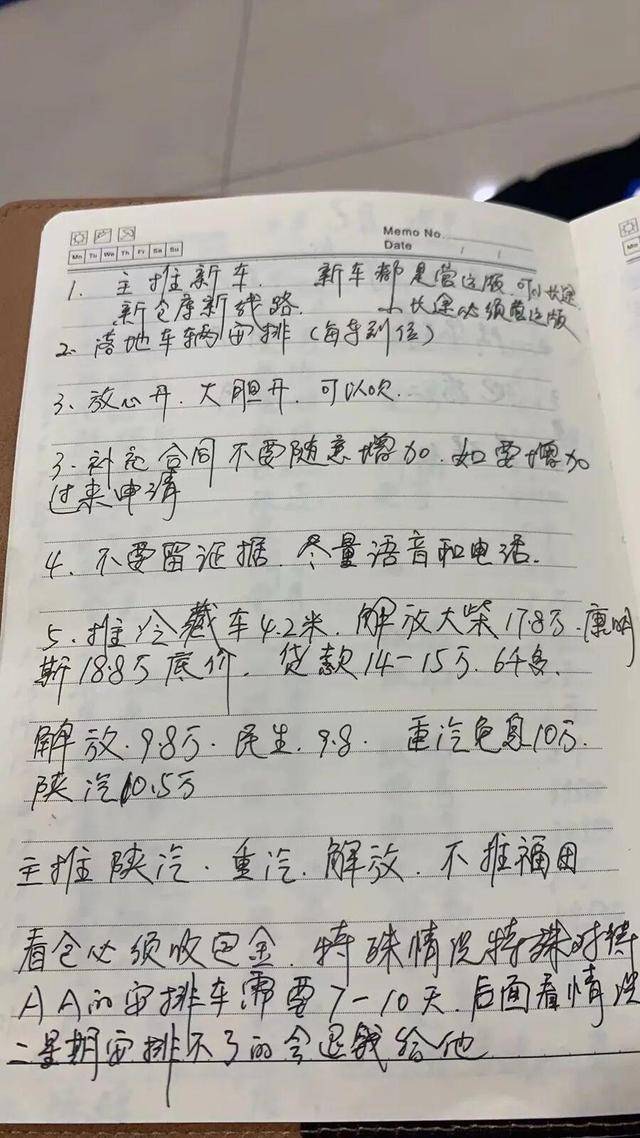 Memo No.
Date / /
Mo Tu We Th Fr Sa Su
1. 主推新车. 新车都是营运版 可以长途
新仓库新线路. 小长途必须营运版
2. 落地车辆安排（每车到位）
3. 放心开. 大胆开. 可以吹.
3. 补充合同不要随意增加. 如要增加
过来申请
4. 不要留证据. 尽量语音和电话.
5. 推冷藏车4.2米. 解放大柴17.8万. 康明
斯18.8万底价. 贷款14-15万. 6千多.
解放. 9.8万. 民生. 9.8. 重汽免息10万.
陕汽10.5万
主推陕汽. 重汽. 解放. 不推福田
看仓必须收定金. 特殊情况特殊对待
AA的安排车需要7-10天. 后面看情况
二星期安排不了的会退钱给他